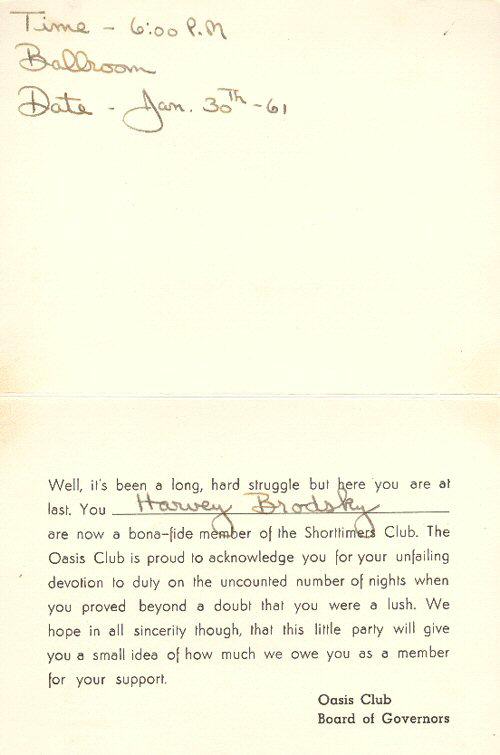 Time - 6:00 P.M
Ballroom
Date - Jan. 30Th - 61
Well, it's been a long, hard struggle but here you are at
last. You Harvey Brodsky
are now a bona-fide member of the Shorttimers Club. The
Oasis Club is proud to acknowledge you for your unfailing
devotion to duty on the uncounted number of nights when
you proved beyond a doubt that you were a lush. We
hope in all sincerity though, that this little party will give
you a small idea of how much we owe you as a member
for your support.
Oasis Club
Board of Governors